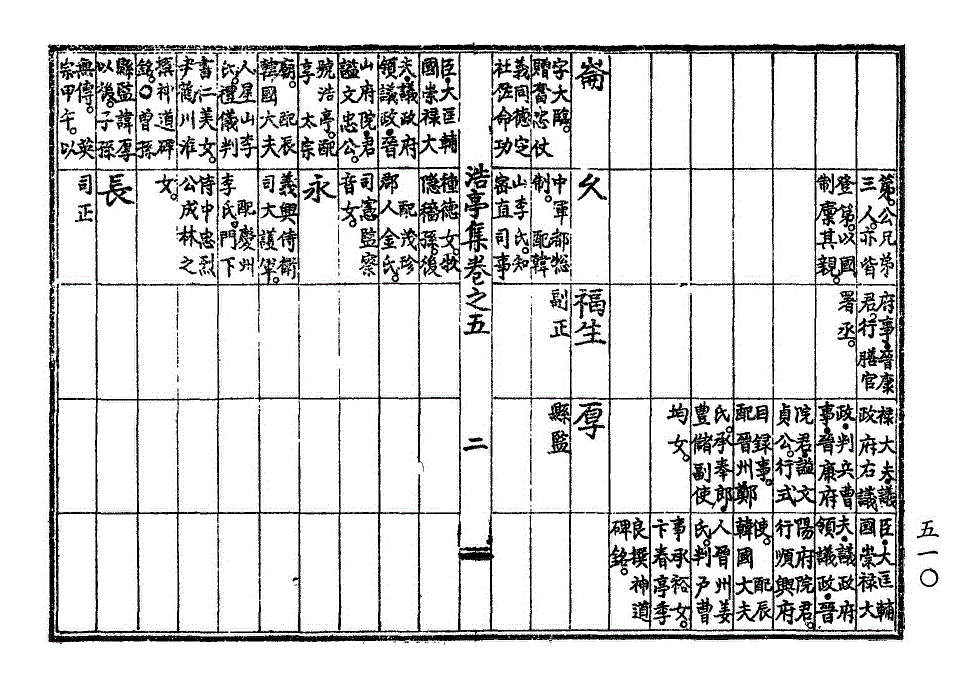 第。公兄弟
三人。亦皆
登第。以國
制廩其親。
府事。晉康
君。行膳官
署丞。
祿大夫。議
政府右議
政。判兵曹
事。晉康府
院君。謚文
貞公。行式
目録事。
配晉州鄭
氏。承奉郎。
豊儲副使
均女。
臣。大匡輔
國崇祿大
夫。議政府
領議政。晉
陽府院君。
行順興府
使。配辰
韓國大夫
人晉州姜
氏。判戶曹
事承裕女。
卞春亭季
良撰神道
碑銘。
崙
字大臨。
贈奮忠仗
義同德定
社佐命功
臣。大匡輔
國崇祿大
夫。議政府
領議政。晉
山府院君。
謚文忠公。
號浩亭。配
享太宗
廟。配辰
韓國大夫
人星山李
氏。禮儀判
書仁美女。
尹蘿川淮
撰神道碑
銘。○曾孫
縣監諱厚
以後。子孫
無傳。英
宗甲午。以
久
中軍都摠
制。配韓
山李氏。知
密直司事
種德女。牧
隱穡孫。後
配茂珍
郡人金氏。
司憲監察
音女。
永
義興侍衛
司大護軍。
配慶州
李氏。門下
侍中忠烈
公成林之
女。
長
司正
福生
副正
厚
縣監
浩亭集卷之五
二
五一〇